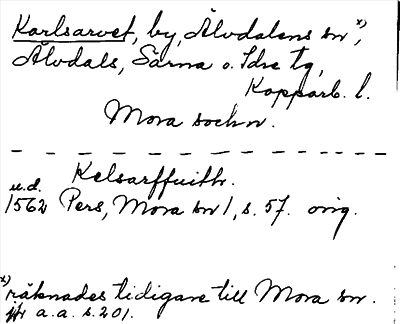 Karlsarvet, by, Älvdalens sn x),
Älvdals, Särna o. Idre tg,
Kopparb. l.
Mora sockn.
Kelsarffuithr.
u.d.
1562 Pers, Mora sn 1, s. 57. orig.
x)
räknades tidigare till Mora sn.
jfr a.a. s. 201.